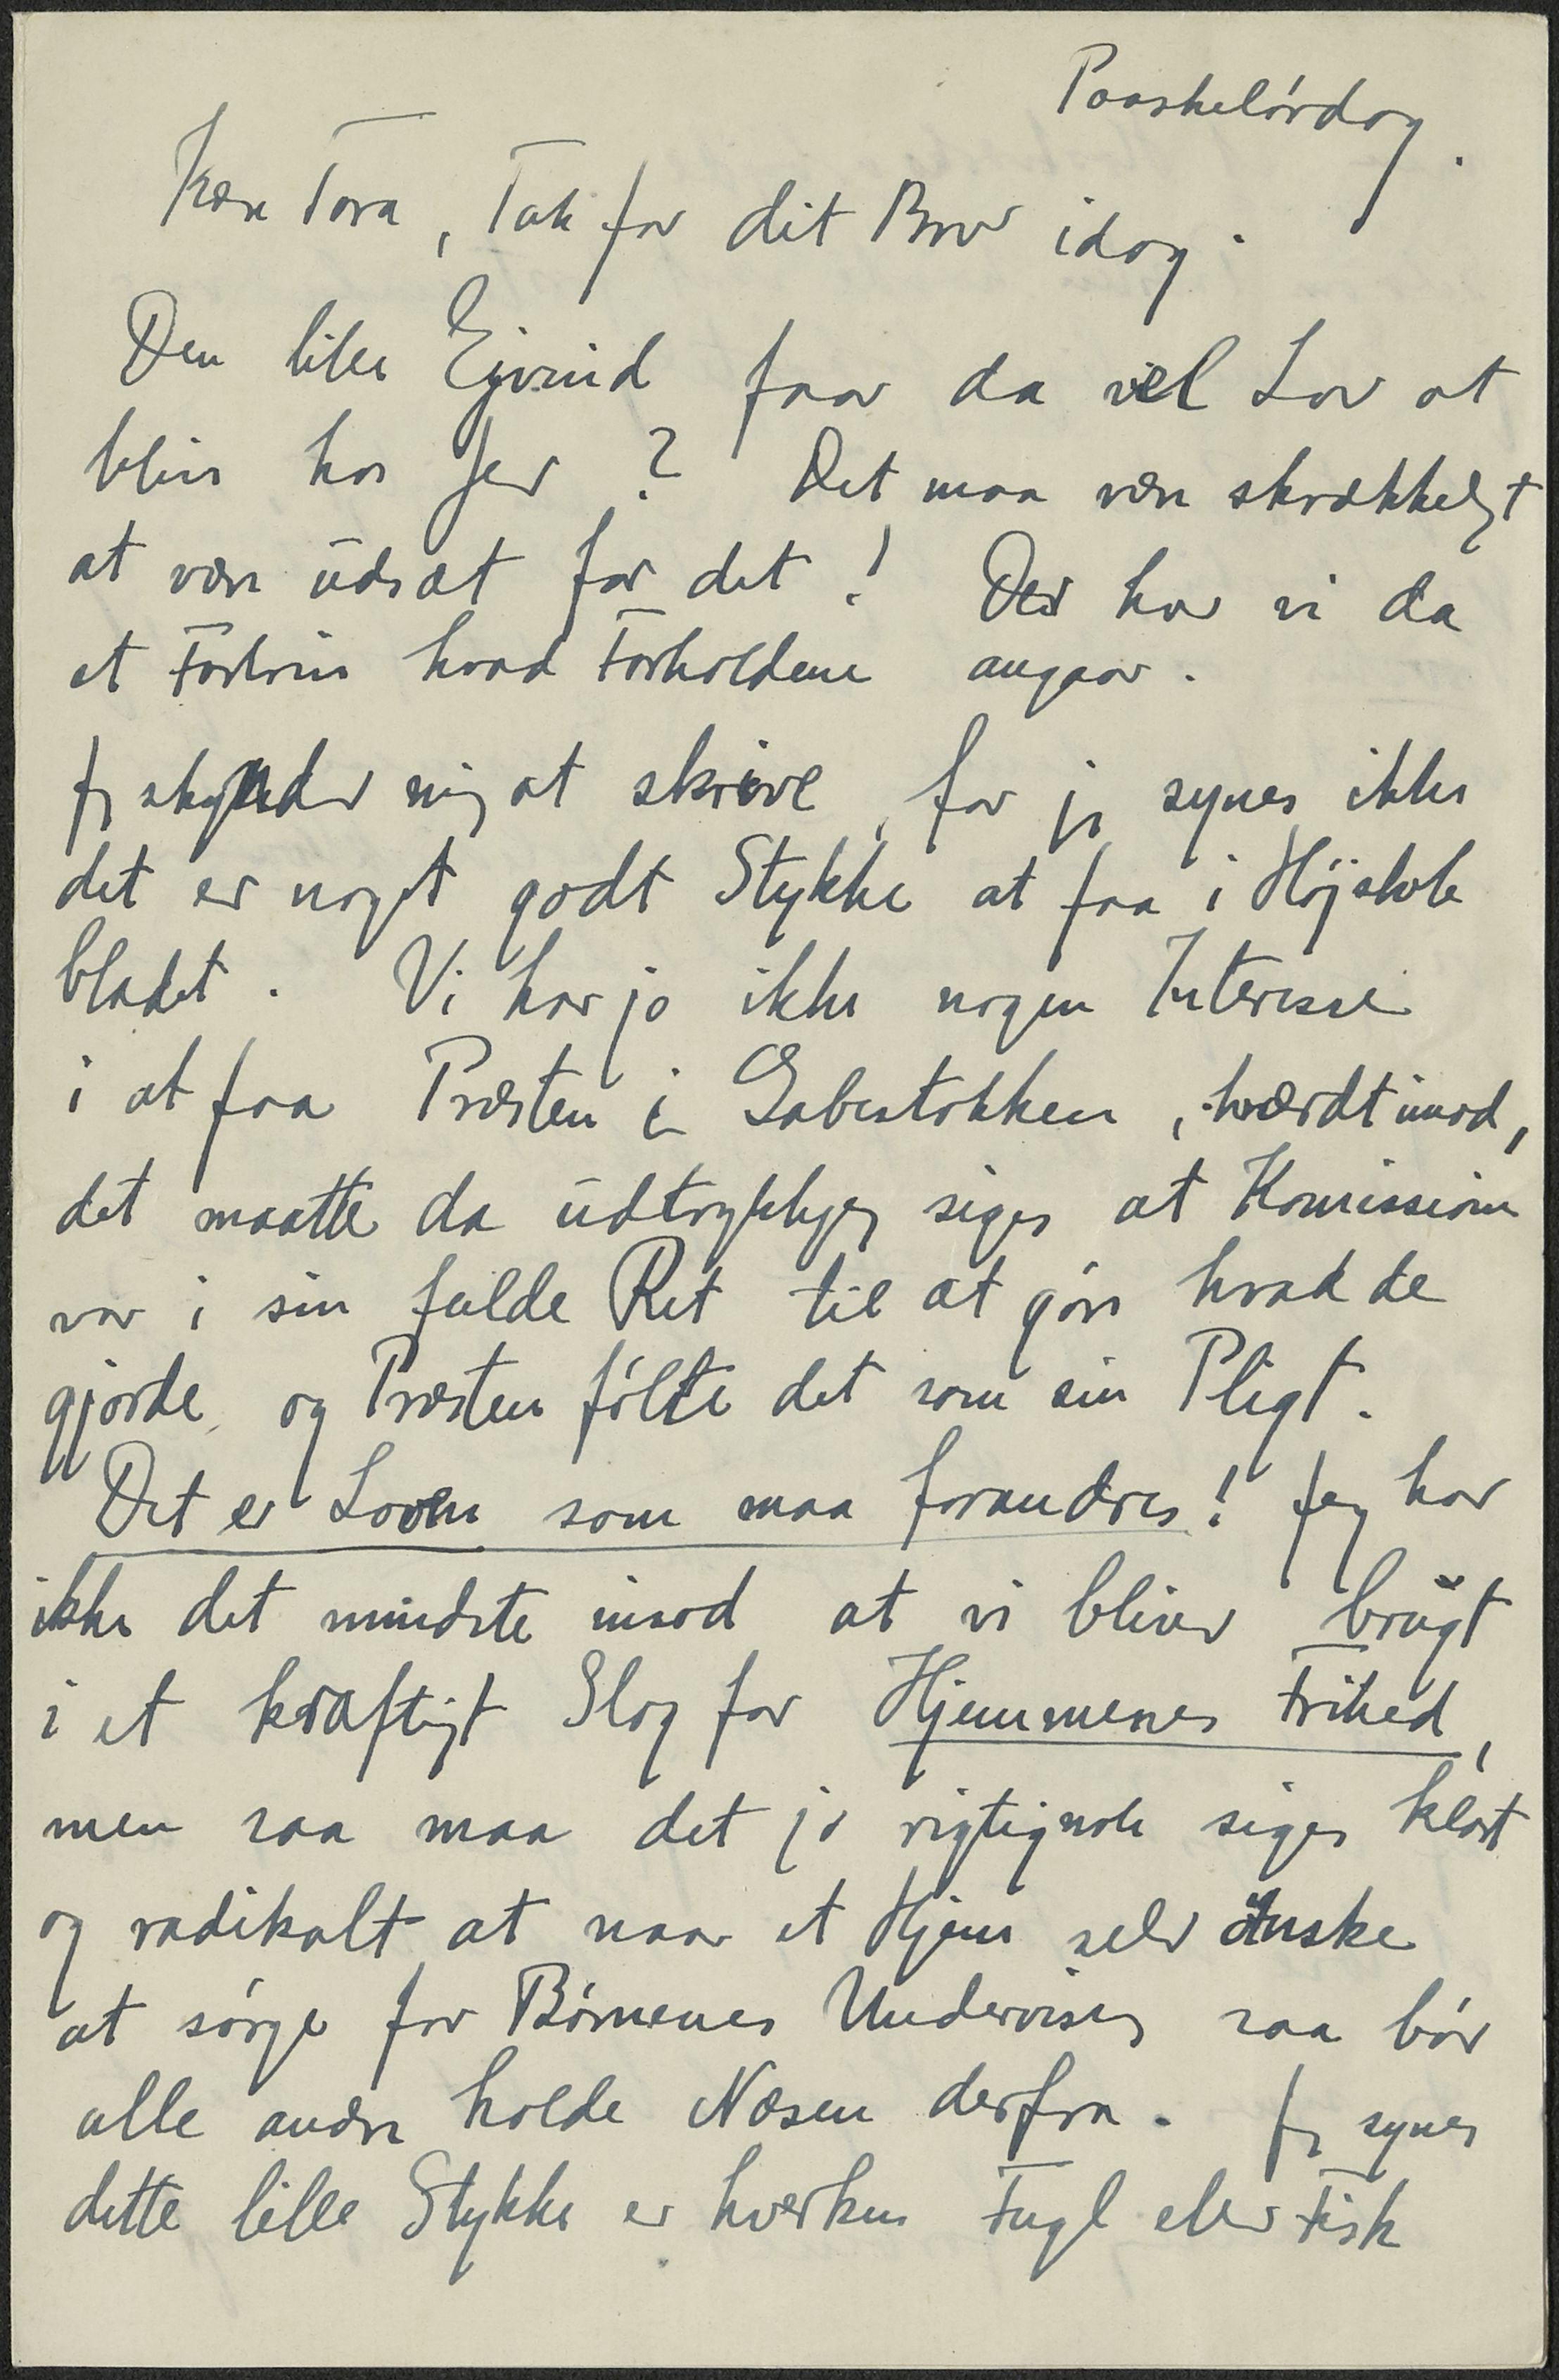 Paaskelørdag.
Kære Tora, Tak for dit Brev idag.
Den lille Ejvind faar da vel Lov at
blive hos Jer? Det maa være skrækkeligt
at være udsat for det! Der har vi da
et Fortrin hvad Forholdene angaar.
Jeg skynder mig at skrive, for jeg synes ikke
det er noget godt Stykke at faa i Højskole
bladet. Vi har jo ikke nogen Interesse
i at faa Præsten i Gabestokken, tværdtimod,
det maatte da udtrykkeligt siges at Komissionen
var i sin fulde Ret til at gøre hvad de
gjorde og Præsten følte det som sin Pligt.
Det er Loven som maa forandres! Jeg har
ikke det mindste imod at vi bliver brugt
i et kraftigt Slag for Hjemmenes Frihed,
men saa maa det jo rigtignok siges klart
og radikalt at naar et Hjem selv ønske
at sørge for Børnenes Undervisning saa bør
alle andre holde Næsen derfra. Jeg synes
dette lille Stykke er hverken Fugl eller Fisk